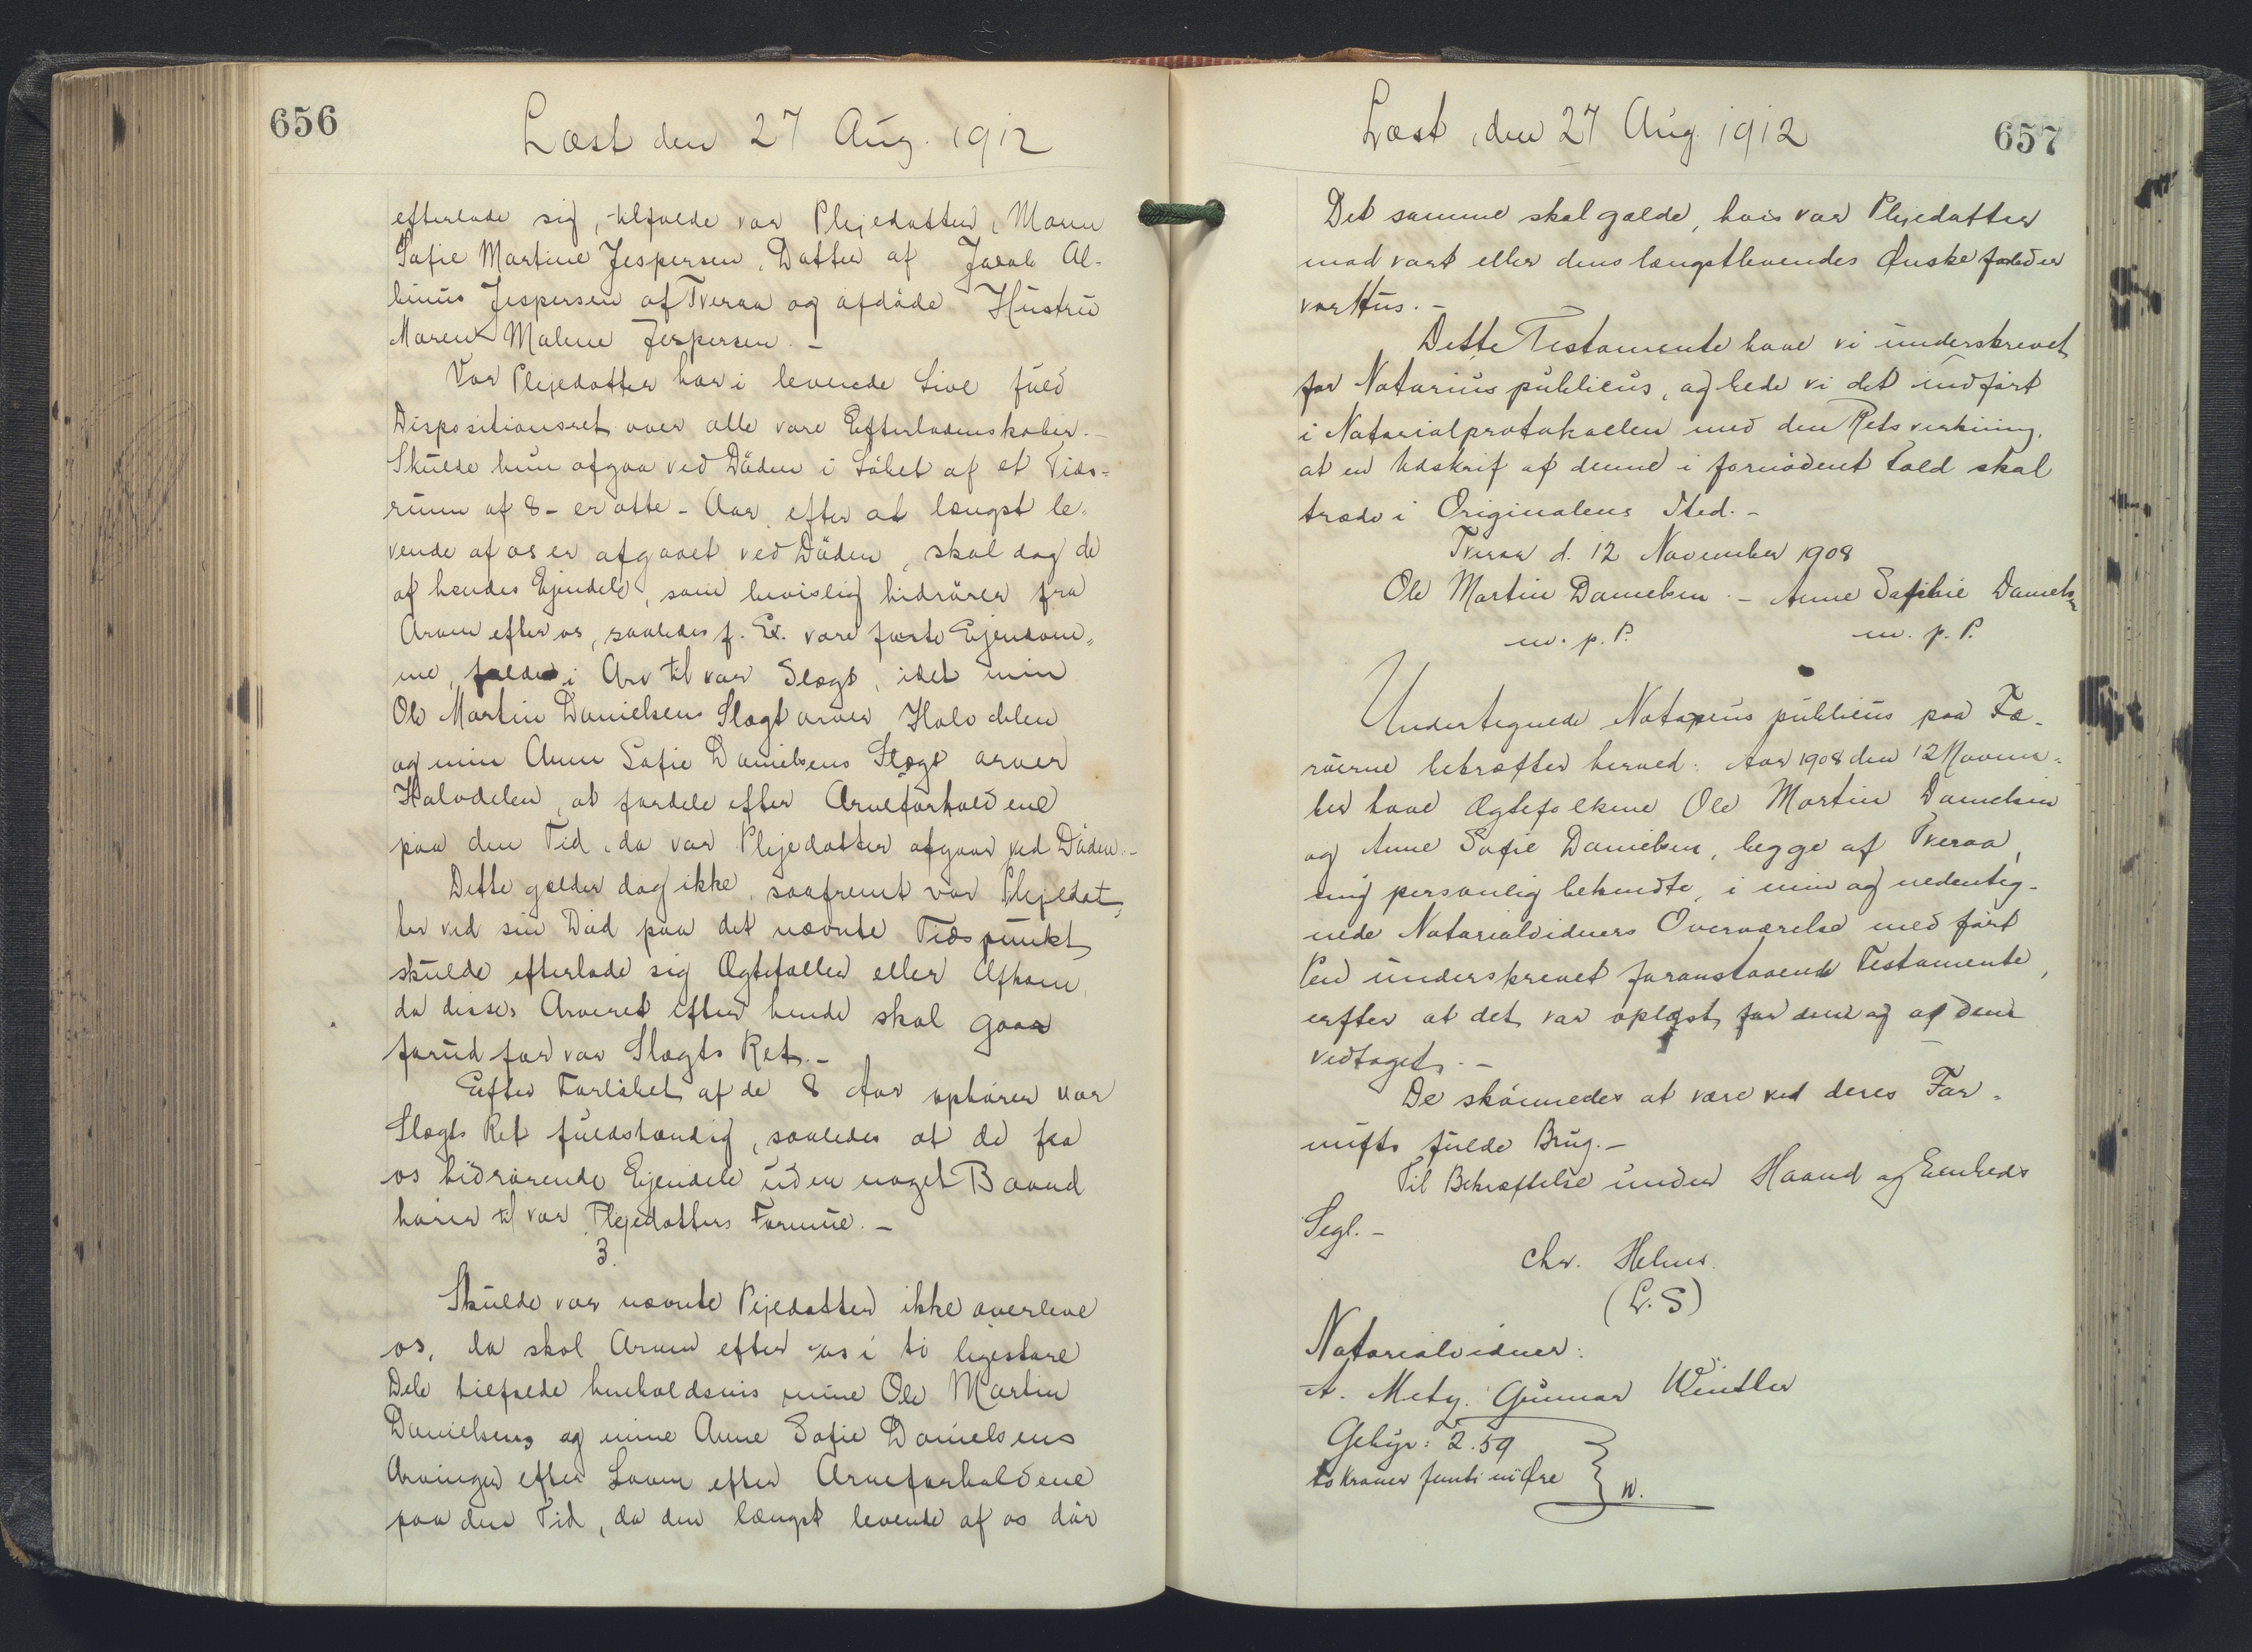 656
Læst den 27 Aug. 1912
efterlade sig, tilfalde vor Plejedatter, Maren
Sofie Martine Jespersen, Datter af Jacob Al-
binus Jespersen af Tveraa og afdøde Hustru
Maren Malene Jespersen. -
Vor Plejedatter har i levende Live fuld
Dispositionsret over alle vore Efterladenskaber. -
Skulde hun afgaa ved Døden i Løbet af et Tids-
rum af 8 - er otte - Aar, efter at længst le-
vende af os er afgaaet ved Døden, skal dog de
af hendes Ejendele, som bevislig hidrører fra
Arven efter os, saaledes f. Ex. vore faste Ejendom-
me, falde i Arv til vor Slægt, idet min
Ole Martin Danielsens Slægt arver Halvdelen
og min Anne Sofie Danielsens Slægt arver
Halvdelen, at fordele efter Arveforholdene
paa den Tid, da vor Plejedatter afgaar ved Døden. -
Dette gælder dog ikke, saafremt vor Plejedat-
ter ved sin Død paa det nævnte Tidspunkt
skulde efterlade sig Ægtefælle eller Afkom,
da disses Arveret efter hende skal gaa
forud for vor Slægts Ret. -
Efter Forløbet af de 8 Aar ophører vor
Slægts Ret fuldstændig, saaledes at de fra
os hidrørende Ejendele uden noget Baand
hører til vor Plejedatters Formue. -
3.
Skulde vor nævnte Pejedatter ikke overleve
os, da skal Arven efter os i to ligestore
Dele tilfalde henholdsvis mine Ole Martin
Danielsens og mine Anne Sofie Danielsens
Arvinger efter Loven efter Arveforholdene
paa den Tid, da den længst levende af os dør
Læst, den 27 Aug 1912
657
Det samme skal gælde, hvis vor Plejedatter
mod vort eller dens længstlevendes Ønske forlader
vor Hus. -
Dette Testamente have vi underskrevet
for Notarius publicus, og bede vi det indført
i Notarialprotokollen med den Retsvirkning,
at en Udskrif af denne i fornødent Fald skal
træde i Originalens Sted. -
Tveraa d. 12 November 1908
Ole Martin Danielsen. - Anne Sofie Danielsen
m. p. P. m. p. P.
Undertegnede Notarius publicus paa Fæ-
røerne bekræfter herved: Aar 1908 den 12 Novem-
ber have Ægtefolkene Ole Martin Danielsen
og Anne Sofie Danielsen, begge af Tveraa,
mig personlig bekendte, i min og nedenteg-
nede Notarialvidners Overværelse med ført
Pen underskrevet foranstaaende Testamente,
efter at det var oplæst for dem og af dem
vedtaget. -
De skønnedes at være ved deres For-
nufts fulde Brug. -
Til Bekræftelse under Haand og Embeds
Segl. -
Chr. Helms.
(L. S)
Notarialvidner:
A. Mety. Gunnar Winther
Gebyr: 2.59
to Kroner femti ni Øre } W.